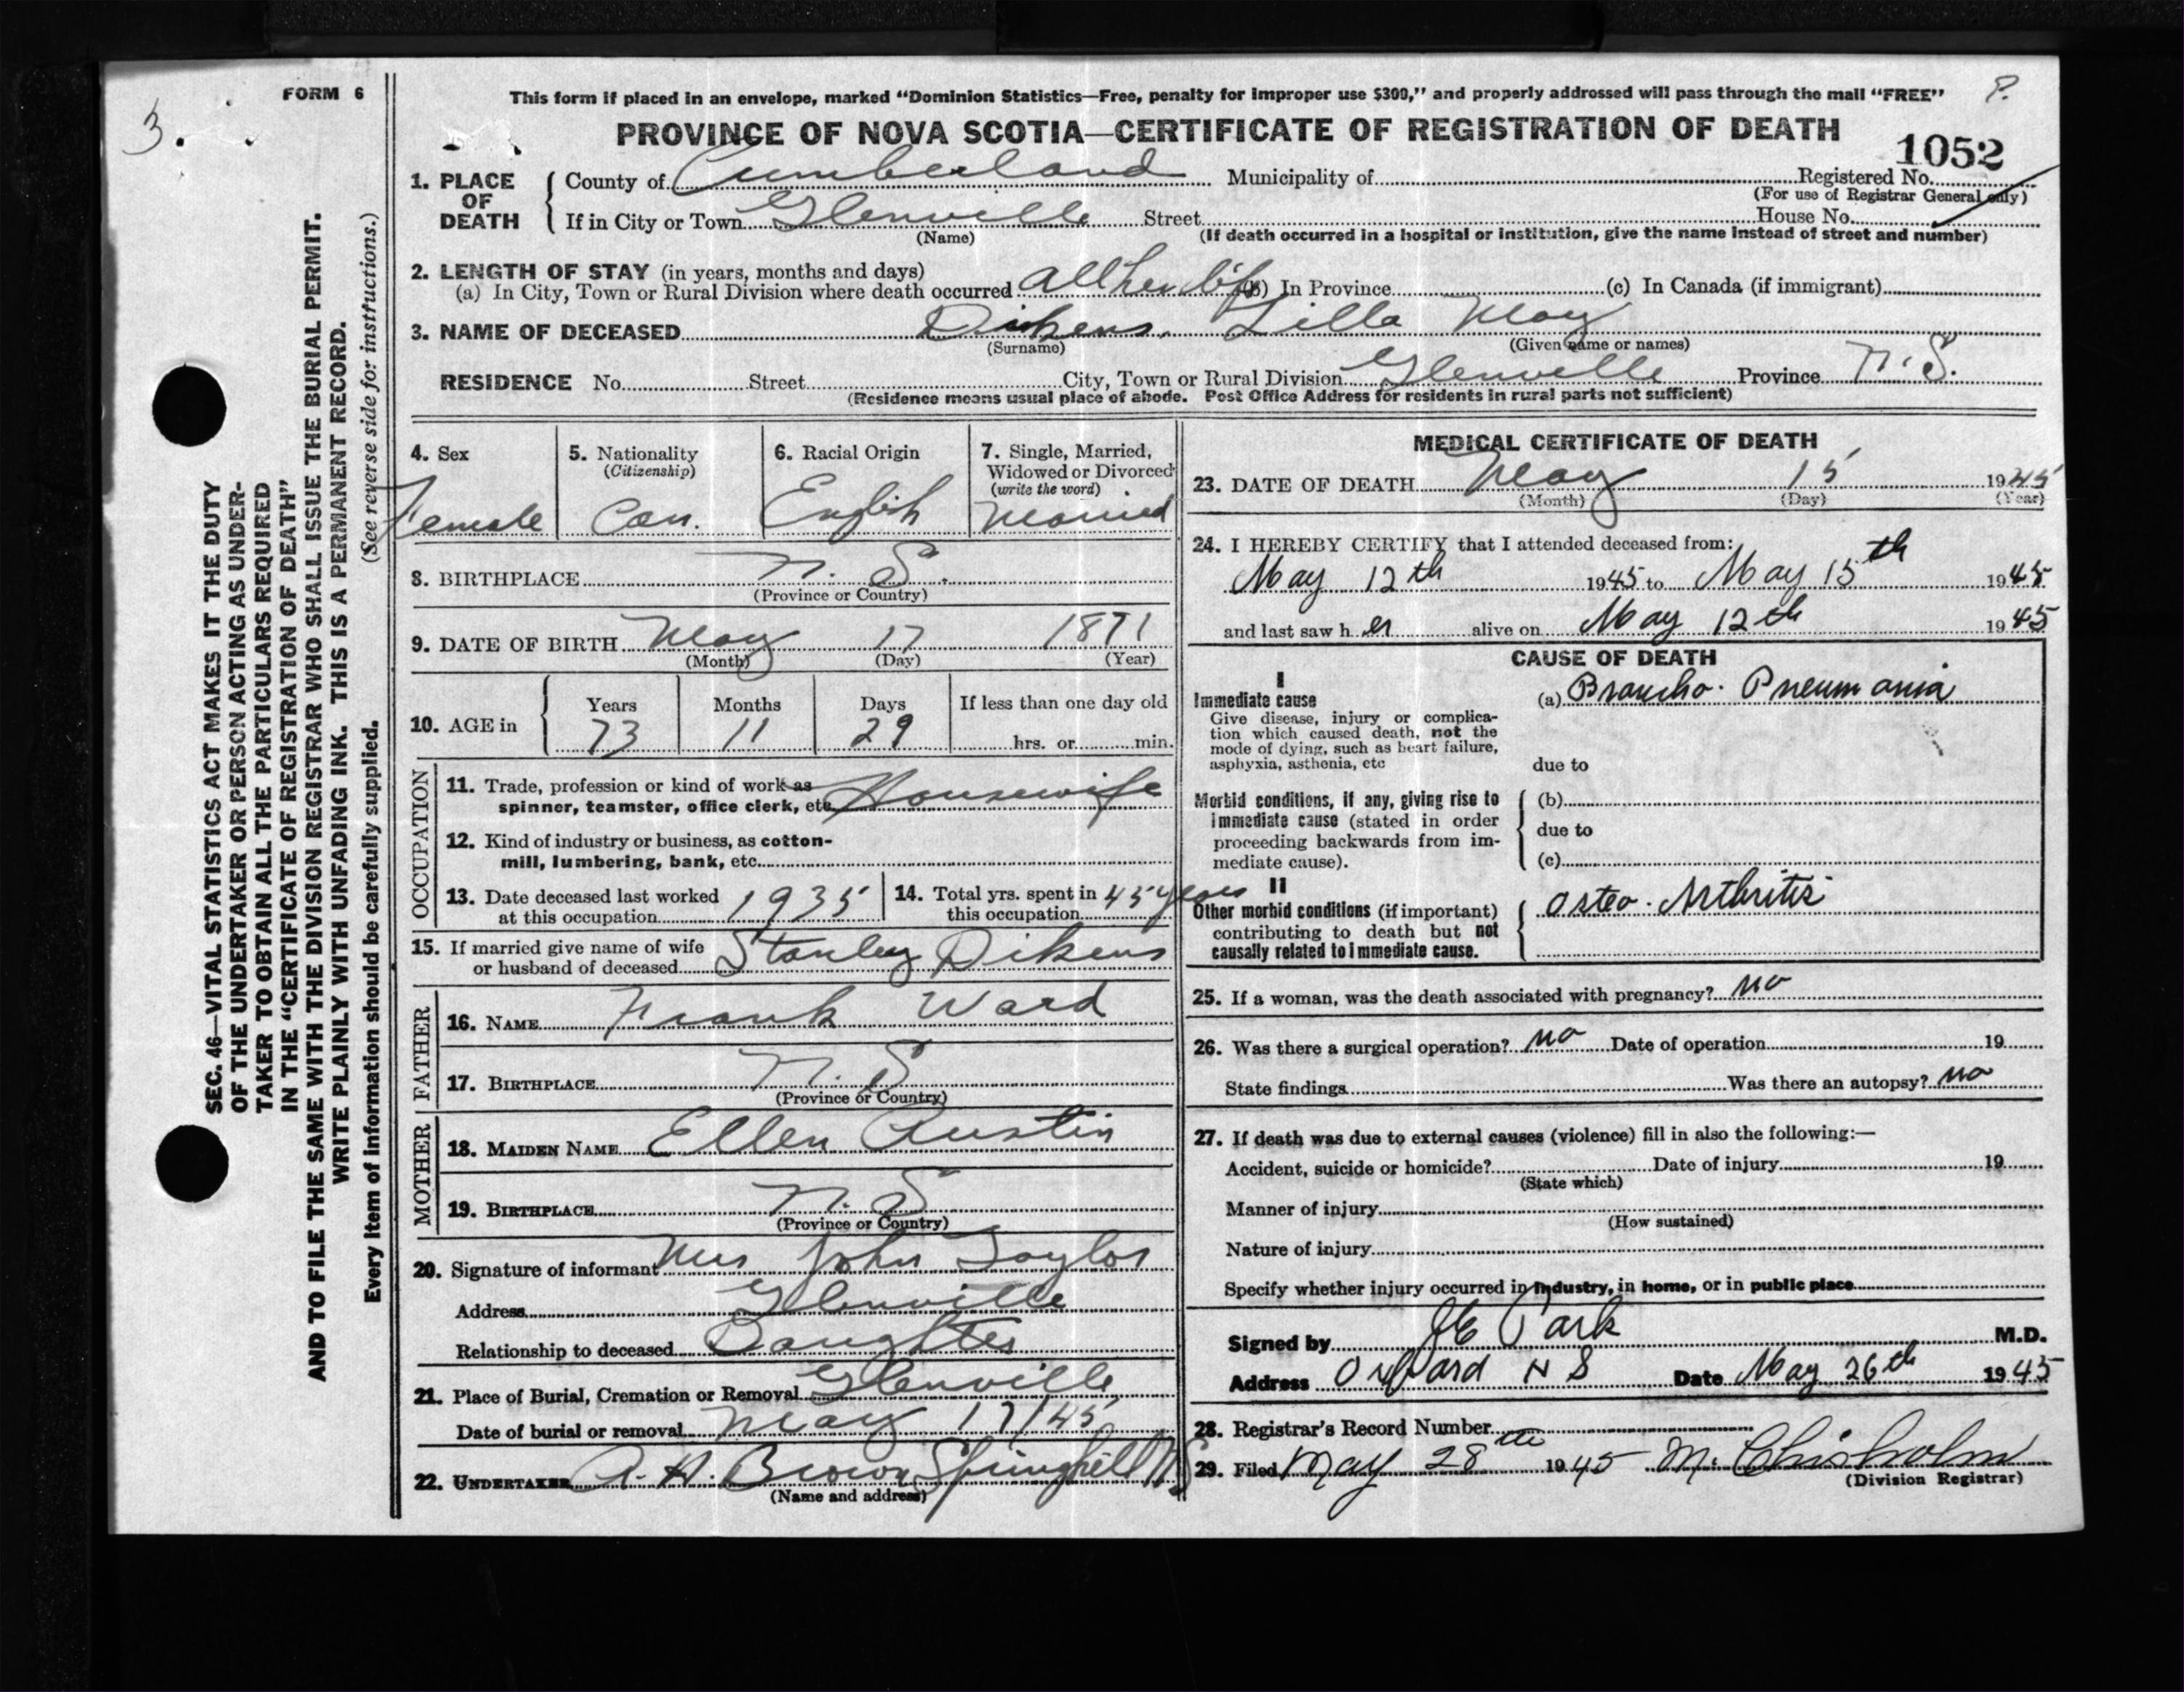 FORM 6
3.
This form if placed in an envelope, marked "Dominion Statistics—Free, penalty for improper use $300," and properly addressed will pass through the mail "FREE"
PROVINCE OF NOVA SCOTIA—CERTIFICATE OF REGISTRATION OF DEATH
1052
1. PLACE OF DEATH County of Cumberland Municipality of Registered No.
(For use of Registrar General only)
If in City or Town Glenville Street House No.
(Name) (If death occurred in a hospital or institution, give the name instead of street and number)
2. LENGTH OF STAY (in years, months and days)
(a) In City, Town or Rural Division where death occurred all her life (b) In Province (c) In Canada (if immigrant)
3. NAME OF DECEASED Dickens, Lilla May
(Surname) (Given name or names)
RESIDENCE No. Street City, Town or Rural Division Glenville Province N.S.
(Residence means usual place of abode. Post Office Address for residents in rural parts not sufficient)
4. Sex
Female
5. Nationality
(Citizenship)
Can.
6. Racial Origin
English
7. Single, Married,
Widowed or Divorced
(write the word)
Married
8. BIRTHPLACE N. S.
(Province or Country)
9. DATE OF BIRTH May 17 1871
(Month) (Day) (Year)
10. AGE in Years Months Days If less than one day old
73 11 29 hrs. or min.
OCCUPATION
11. Trade, profession or kind of work as
spinner, teamster, office clerk, etc. Housewife
12. Kind of industry or business, as cotton-
mill, lumbering, bank, etc.
13. Date deceased last worked
at this occupation 1935
14. Total yrs. spent in
this occupation 45 years
15. If married give name of wife
or husband of deceased Stanley Dikens
FATHER
16. NAME Frank Ward
17. BIRTHPLACE N. S
(Province or Country)
MOTHER
18. MAIDEN NAME Ellen Austin
19. BIRTHPLACE N. S
(Province or Country)
20. Signature of informant Mrs John Taylor
Address Glenville
Relationship to deceased Daughter
21. Place of Burial, Cremation or Removal Glenville
Date of burial or removal May 17/45
22. UNDERTAKER A. H. Brown Springhill N S
(Name and address)
MEDICAL CERTIFICATE OF DEATH
23. DATE OF DEATH May 15 1945
(Month) (Day) (Year)
24. I HEREBY CERTIFY that I attended deceased from:
May 12th 1945 to May 15th 1945
and last saw her alive on May 12th 1945
CAUSE OF DEATH
I
Immediate cause
Give disease, injury or complica-
tion which caused death, not the
mode of dying, such as heart failure,
asphyxia, asthenia, etc
(a) Broncho. Pneumonia
due to
Morbid conditions, if any, giving rise to
immediate cause (stated in order
proceeding backwards from im-
mediate cause).
(b)
due to
(c)
II
Other morbid conditions (if important)
contributing to death but not
causally related to immediate cause.
Osteo. Arthritis
25. If a woman, was the death associated with pregnancy? no
26. Was there a surgical operation? no Date of operation 19
State findings Was there an autopsy? no
27. If death was due to external causes (violence) fill in also the following:—
Accident, suicide or homicide? Date of injury 19
(State which)
Manner of injury
(How sustained)
Nature of injury
Specify whether injury occurred in industry, in home, or in public place
Signed by JE Park M.D.
Address Oxford N S Date May 26th 1945
28. Registrar's Record Number
29. Filed May 28th 1945 M. Chisholm
(Division Registrar)
SEC. 46—VITAL STATISTICS ACT MAKES IT THE DUTY
OF THE UNDERTAKER OR PERSON ACTING AS UNDER-
TAKER TO OBTAIN ALL THE PARTICULARS REQUIRED
IN THE "CERTIFICATE OF REGISTRATION OF DEATH"
AND TO FILE THE SAME WITH THE DIVISION REGISTRAR WHO SHALL ISSUE THE BURIAL PERMIT.
WRITE PLAINLY WITH UNFADING INK. THIS IS A PERMANENT RECORD.
Every item of information should be carefully supplied. (See reverse side for instructions.)